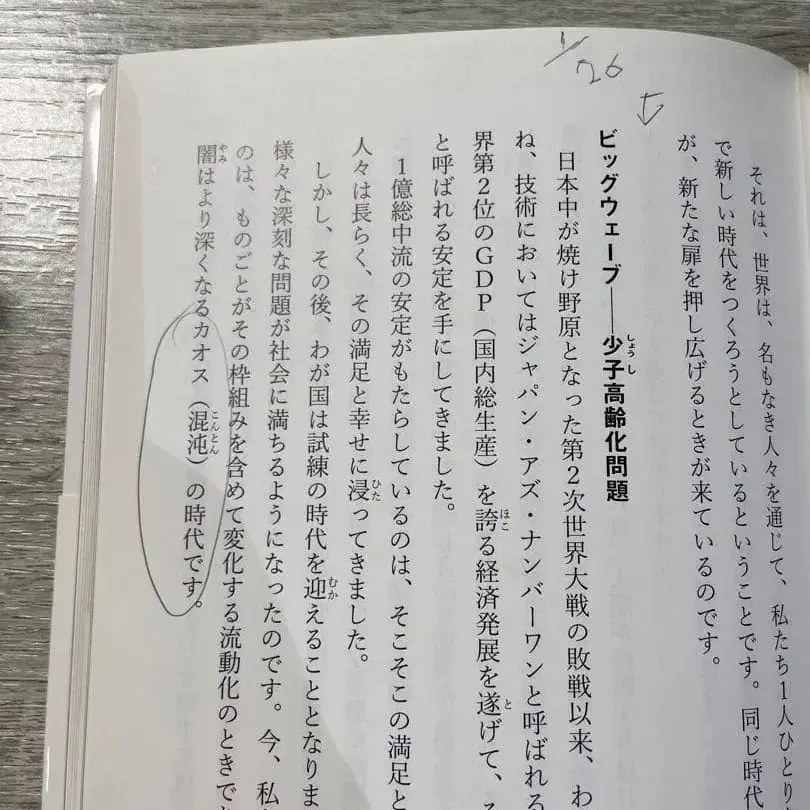 1/26
それは、世界は、名もなき人々を通じて、私たち1人ひとり
で新しい時代をつくろうとしているということです。同じ時代
が、新たな扉を押し広げるときが来ているのです。
ビッグウェーブ——少子高齢化問題
日本中が焼け野原となった第2次世界大戦の敗戦以来、わ
ね、技術においてはジャパン・アズ・ナンバーワンと呼ばれる
界第2位のGDP（国内総生産）を誇る経済発展を遂げて、
と呼ばれる安定を手にしてきました。
1億総中流の安定がもたらしているのは、そこそこの満足と
人々は長らく、その満足と幸せに浸ってきました。
しかし、その後、わが国は試練の時代を迎えることとなりま
様々な深刻な問題が社会に満ちるようになったのです。今、私
のは、ものごとがその枠組みを含めて変化する流動化のときで
闇はより深くなるカオス（混沌）の時代です。